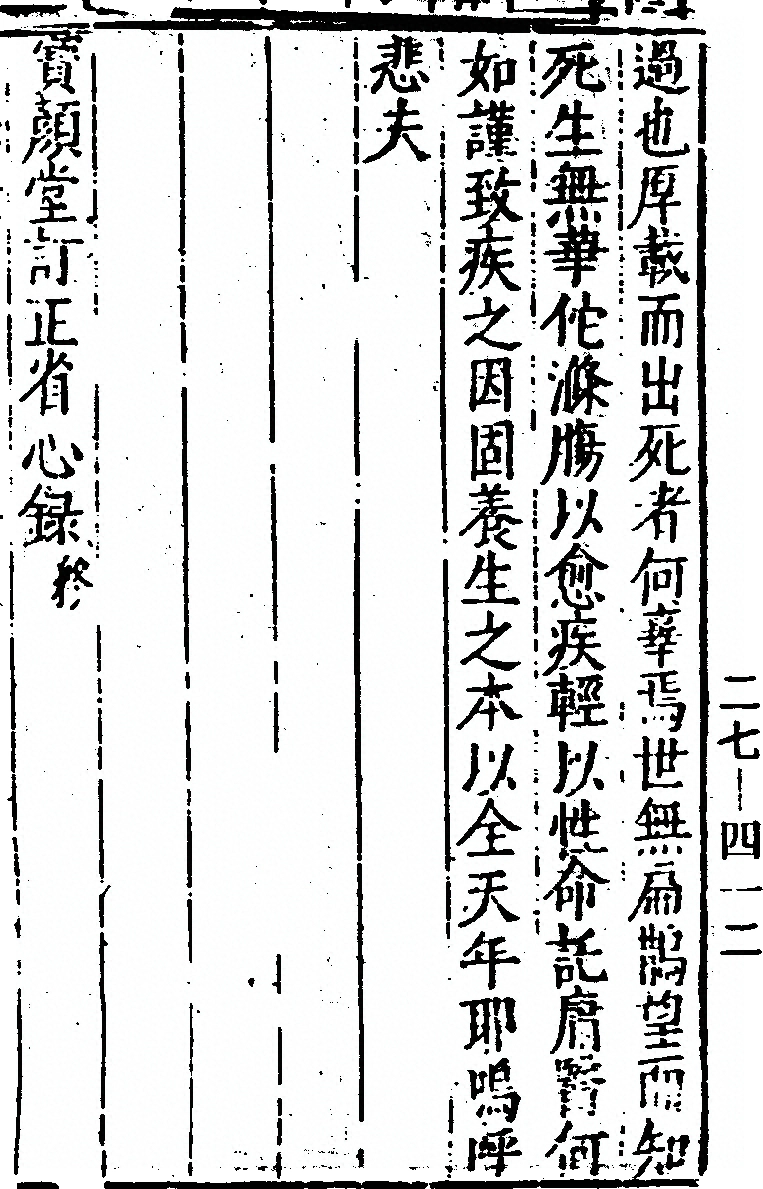 過也厚載而出死者何辜焉世無扁鵲望而知
死生無華佗滌腸以愈疾輕以性命託庸醫何
如謹致疾之因固養生之本以全天年耶嗚呼
悲夫
寶顏堂訂正省心錄終
二七—四一二